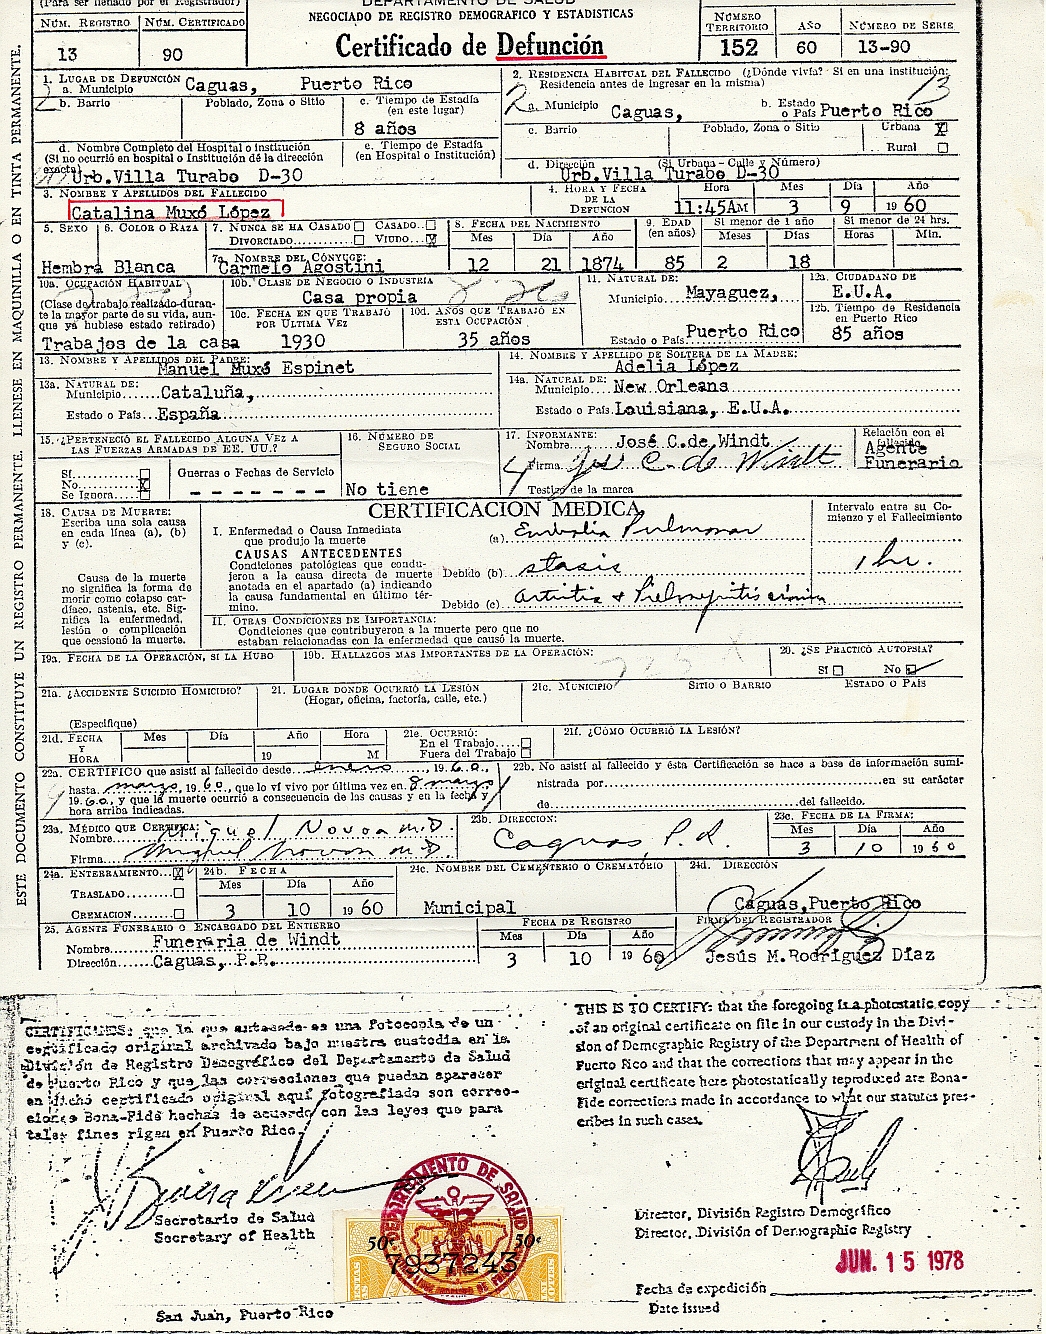 (Para ser llenado por el Registrador)
DEPARTAMENTO DE SALUD
NEGOCIADO DE REGISTRO DEMOGRAFICO Y ESTADISTICAS
Certificado de Defunción
NÚM. REGISTRO 13
NÚM. CERTIFICADO 90
NÚMERO TERRITORIO 152
AÑO 60
NÚMERO DE SERIE 13-90
ESTE DOCUMENTO CONSTITUYE UN REGISTRO PERMANENTE. LLENESE EN MAQUINILLA O EN TINTA PERMANENTE.
1. LUGAR DE DEFUNCIÓN
a. Municipio Caguas, Puerto Rico
b. Barrio
Poblado, Zona o Sitio
c. Tiempo de Estadía
(en este lugar)
8 años
d. Nombre Completo del Hospital o institución
(Si no ocurrió en hospital o Institución dé la dirección
exacta)
Urb. Villa Turabo D-30
e. Tiempo de Estadía
(en Hospital o Institución)
2. RESIDENCIA HABITUAL DEL FALLECIDO (¿Dónde vivía? Si en una institución:
Residencia antes de ingresar en la misma)
13
a. Municipio Caguas,
b. Estado o País Puerto Rico
c. Barrio
Poblado, Zona o Sitio
Urbana X
Rural
d. Dirección (Si Urbana - Calle y Número)
Urb. Villa Turabo D-30
3. NOMBRE Y APELLIDOS DEL FALLECIDO
Catalina Muxó López
4. HORA Y FECHA DE LA DEFUNCION
Hora 11:45AM
Mes 3
Día 9
Año 1960
5. SEXO Hembra
6. COLOR O RAZA Blanca
7. NUNCA SE HA CASADO CASADO
DIVORCIADO VIUDO X
7a. NOMBRE DEL CÓNYUGE:
Carmelo Agostini
8. FECHA DEL NACIMIENTO
Mes 12
Día 21
Año 1874
9. EDAD (en años) 85
Si menor de 1 año
Meses 2
Días 18
Si menor de 24 hrs.
Horas
Min.
10a. OCUPACIÓN HABITUAL)
(Clase de trabajo realizado durante la mayor parte de su vida, aunque ya hubiese estado retirado)
Trabajos de la casa
10b. CLASE DE NEGOCIO O INDUSTRIA
Casa propia
10c. FECHA EN QUE TRABAJÓ POR ULTIMA VEZ
1930
10d. AÑOS QUE TRABAJÓ EN ESTA OCUPACIÓN.
35 años
11. NATURAL DE:
Municipio Mayaguez,
Estado o País Puerto Rico
12a. CIUDADANO DE
E.U.A.
12b. Tiempo de Residencia en Puerto Rico
85 años
13. NOMBRE Y APELLIDOS DEL PADRE:
Manuel Muxó Espinet
13a. NATURAL DE:
Municipio Cataluña,
Estado o País España
14. NOMBRE Y APELLIDO DE SOLTERA DE LA MADRE:
Adelia López
14a. NATURAL DE:
Municipio New Orleans
Estado o País Louisiana, E.U.A.
15. ¿PERTENECIÓ EL FALLECIDO ALGUNA VEZ A
LAS FUERZAS ARMADAS DE EE. UU.?
Sí
No X
Se Ignora
Guerras o Fechas de Servicio
- - - - - - -
16. NÚMERO DE SEGURO SOCIAL
No tiene
17. INFORMANTE:
Nombre José C. de Windt
Firma José C. de Windt
Testigo de la marca
Relación con el fallecido
Agente
Funerario
CERTIFICACION MEDICA
18. CAUSA DE MUERTE:
Escriba una sola causa
en cada línea (a), (b)
y (c).
Causa de la muerte
no significa la forma de
morir como colapso cardíaco, astenia, etc. Significa la enfermedad,
lesión o complicación
que ocasionó la muerte.
I. Enfermedad o Causa Inmediata
que produjo la muerte
(a) Embolia Pulmonar
CAUSAS ANTECEDENTES
Condiciones patológicas que condujeron a la causa directa de muerte
anotada en el apartado (a) indicando
la causa fundamental en último término.
Debido (b) stasis
Debido (c) Artritis + Pielonefritis crónica
Intervalo entre su Comienzo y el Fallecimiento
1 hr.
II. OTRAS CONDICIONES DE IMPORTANCIA:
Condiciones que contribuyeron a la muerte pero que no
estaban relacionadas con la enfermedad que causó la muerte.
19a. FECHA DE LA OPERACIÓN, SI LA HUBO
19b. HALLAZGOS MAS IMPORTANTES DE LA OPERACIÓN:
20. ¿SE PRACTICÓ AUTOPSIA?
SÍ No
21a. ¿ACCIDENTE SUICIDIO HOMICIDIO?
(Especifique)
21. LUGAR DONDE OCURRIÓ LA LESIÓN
(Hogar, oficina, factoría, calle, etc.)
21c. MUNICIPIO SITIO O BARRIO ESTADO O PAÍS
21d. FECHA Y HORA
Mes Día Año Hora
19 M
21e. OCURRIÓ:
En el Trabajo
Fuera del Trabajo
21f. ¿CÓMO OCURRIÓ LA LESIÓN?
22a. CERTIFICO que asistí al fallecido desde enero, 1960,
hasta marzo, 1960, que lo ví vivo por última vez en 8 marzo,
1960, y que la muerte ocurrió a consecuencia de las causas y en la fecha y
hora arriba indicadas.
22b. No asistí al fallecido y ésta Certificación se hace a base de información suministrada por en su carácter
de del fallecido.
23a. MÉDICO QUE CERTIFICA:
Nombre Miguel Novoa M.D.
Firma Miguel Novoa M.D.
23b. DIRECCION:
Caguas, P.R.
23c. FECHA DE LA FIRMA:
Mes 3
Día 10
Año 1960
24a. ENTERRAMIENTO X
TRASLADO
CREMACION
24b. FECHA
Mes 3
Día 10
Año 1960
24c. NOMBRE DEL CEMENTERIO O CREMATÓRIO
Municipal
24d. DIRECCIÓN
Caguas, Puerto Rico
25. AGENTE FUNERARIO O ENCARGADO DEL ENTIERRO
Nombre Funeraria de Windt
Dirección Caguas, P.R.
FECHA DE REGISTRO
Mes 3
Día 10
Año 1960
FIRMA DEL REGISTRADOR
Jesús M. Rodríguez Díaz
CERTIFICAMOS: que la que antecede es una fotocopia de un
certificado original archivado bajo nuestra custodia en la
División de Registro Demográfico del Departamento de Salud
de Puerto Rico y que las correcciones que puedan aparecer
en dicho certificado original aquí fotografiado son correcciones Bona-Fide hechas de acuerdo con las leyes que para
tales fines rigen en Puerto Rico.
Secretario de Salud
Secretary of Health
San Juan, Puerto Rico
THIS IS TO CERTIFY: that the foregoing is a photostatic copy
of an original certificate on file in our custody in the Division of Demographic Registry of the Department of Health of
Puerto Rico and that the corrections that may appear in the
original certificate here photostatically reproduced are Bona-
Fide corrections made in accordance to what our statutes prescribes in such cases.
Director, División Registro Demográfico
Director, Division of Demographic Registry
JUN. 15 1978
Fecha de expedición
Date issued
DEPARTAMENTO DE SALUD
50¢ 50¢
7937243